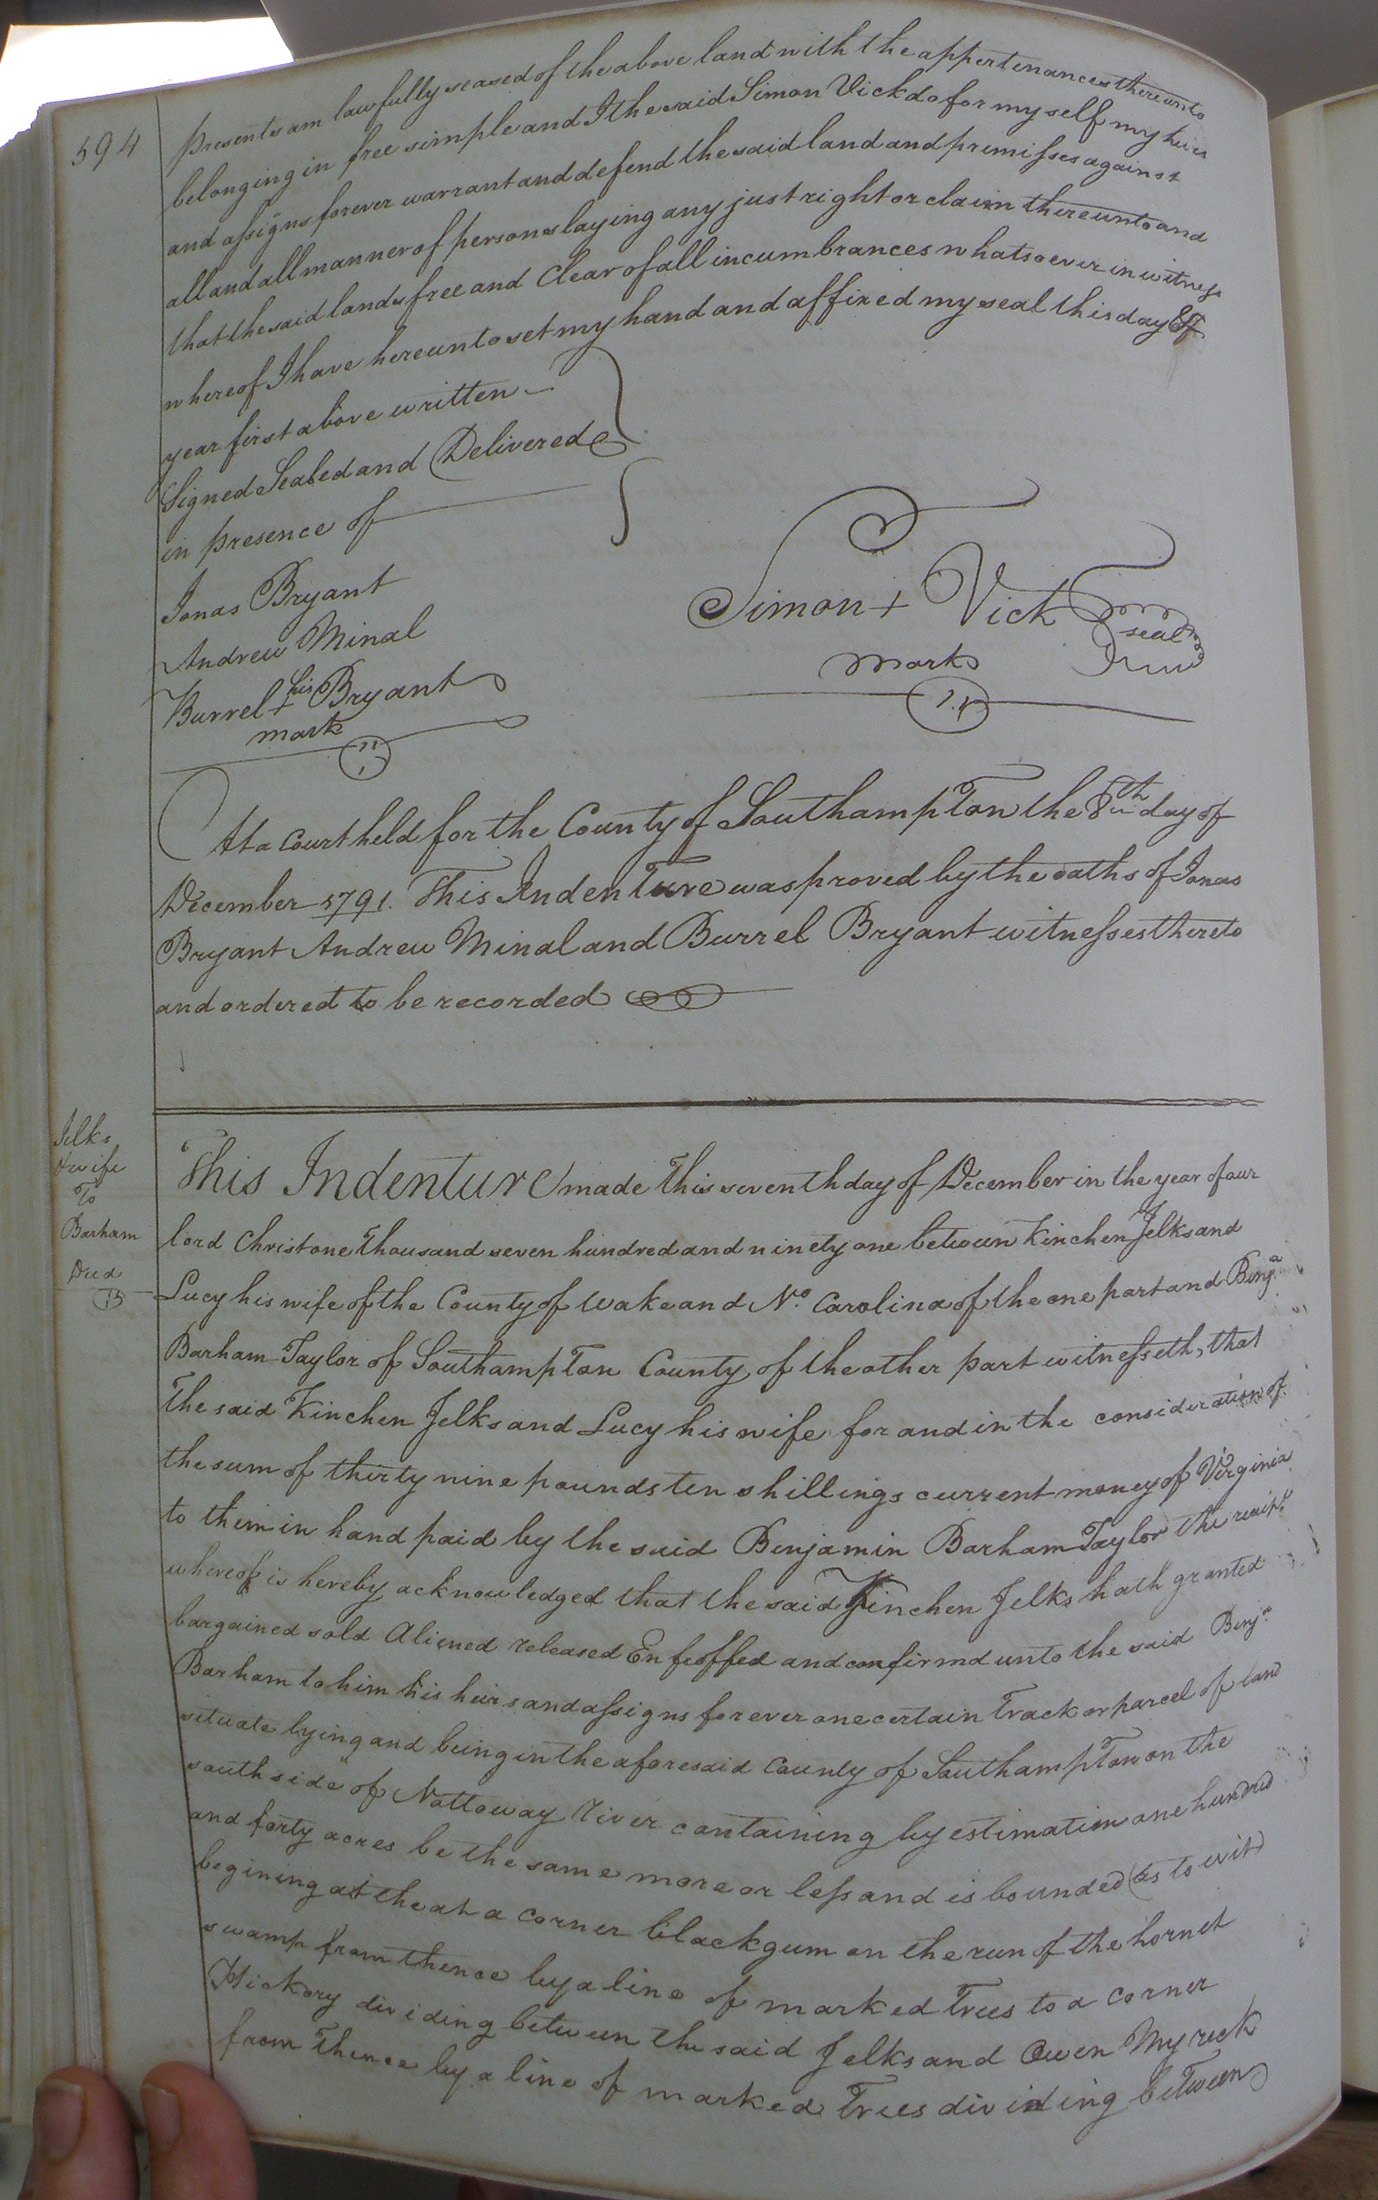 594
presents am lawfully seased of the above land with the appertenances thereunto
belonging in free simple and I the said Simon Vick do for my self my heirs
and assigns forever warrant and defend the said land and premisses against
all and all manner of persons laying any just right or claim thereunto and
that the said lands free and Clear of all incumbrances whatsoever in witness
whereof I have hereunto set my hand and affixed my seal this day &
year first above written
Signed Sealed and Delivered
in presence of
Jonas Bryant
Andrew Minal
Burrel + his Bryant
mark
Simon + Vick seal
mark
At a Court held for the County of Southampton the 8th day of
December 1791. This Indenture was proved by the oaths of Jonas
Bryant Andrew Minal and Burrel Bryant witnesses thereto
and ordered to be recorded
Jelks
& wife
To
Barham
Deed
This Indenture made this seventh day of December in the year of our
lord Christ one thousand seven hundred and ninety one between Kinchen Jelks and
Lucy his wife of the County of Wake and No. Carolina of the one part and Benja.
Barham Taylor of Southampton County of the other part witnesseth, that
the said Kinchen Jelks and Lucy his wife for and in the consideration of
the sum of thirty nine pounds ten shillings current money of Virginia
to them in hand paid by the said Benjamin Barham Taylor the receipt
whereof is hereby acknowledged that the said Kinchen Jelks hath granted
bargained sold Aliened released Enfeoffed and confirmd unto the said Benja.
Barham to him his heirs and assigns forever one certain Track or parcel of land
situate lying and being in the aforesaid County of Southampton on the
south side of Nottoway river containing by estimation one hundred
and forty acres be the same more or less and is bounded (as to wit)
begining at the at a corner blackgum on the run of the hornet
swamp from thence by a line of marked Trees to a corner
Hickory dividing between the said Jelks and Owen Myrick
from Thence by a line of marked Trees dividing between